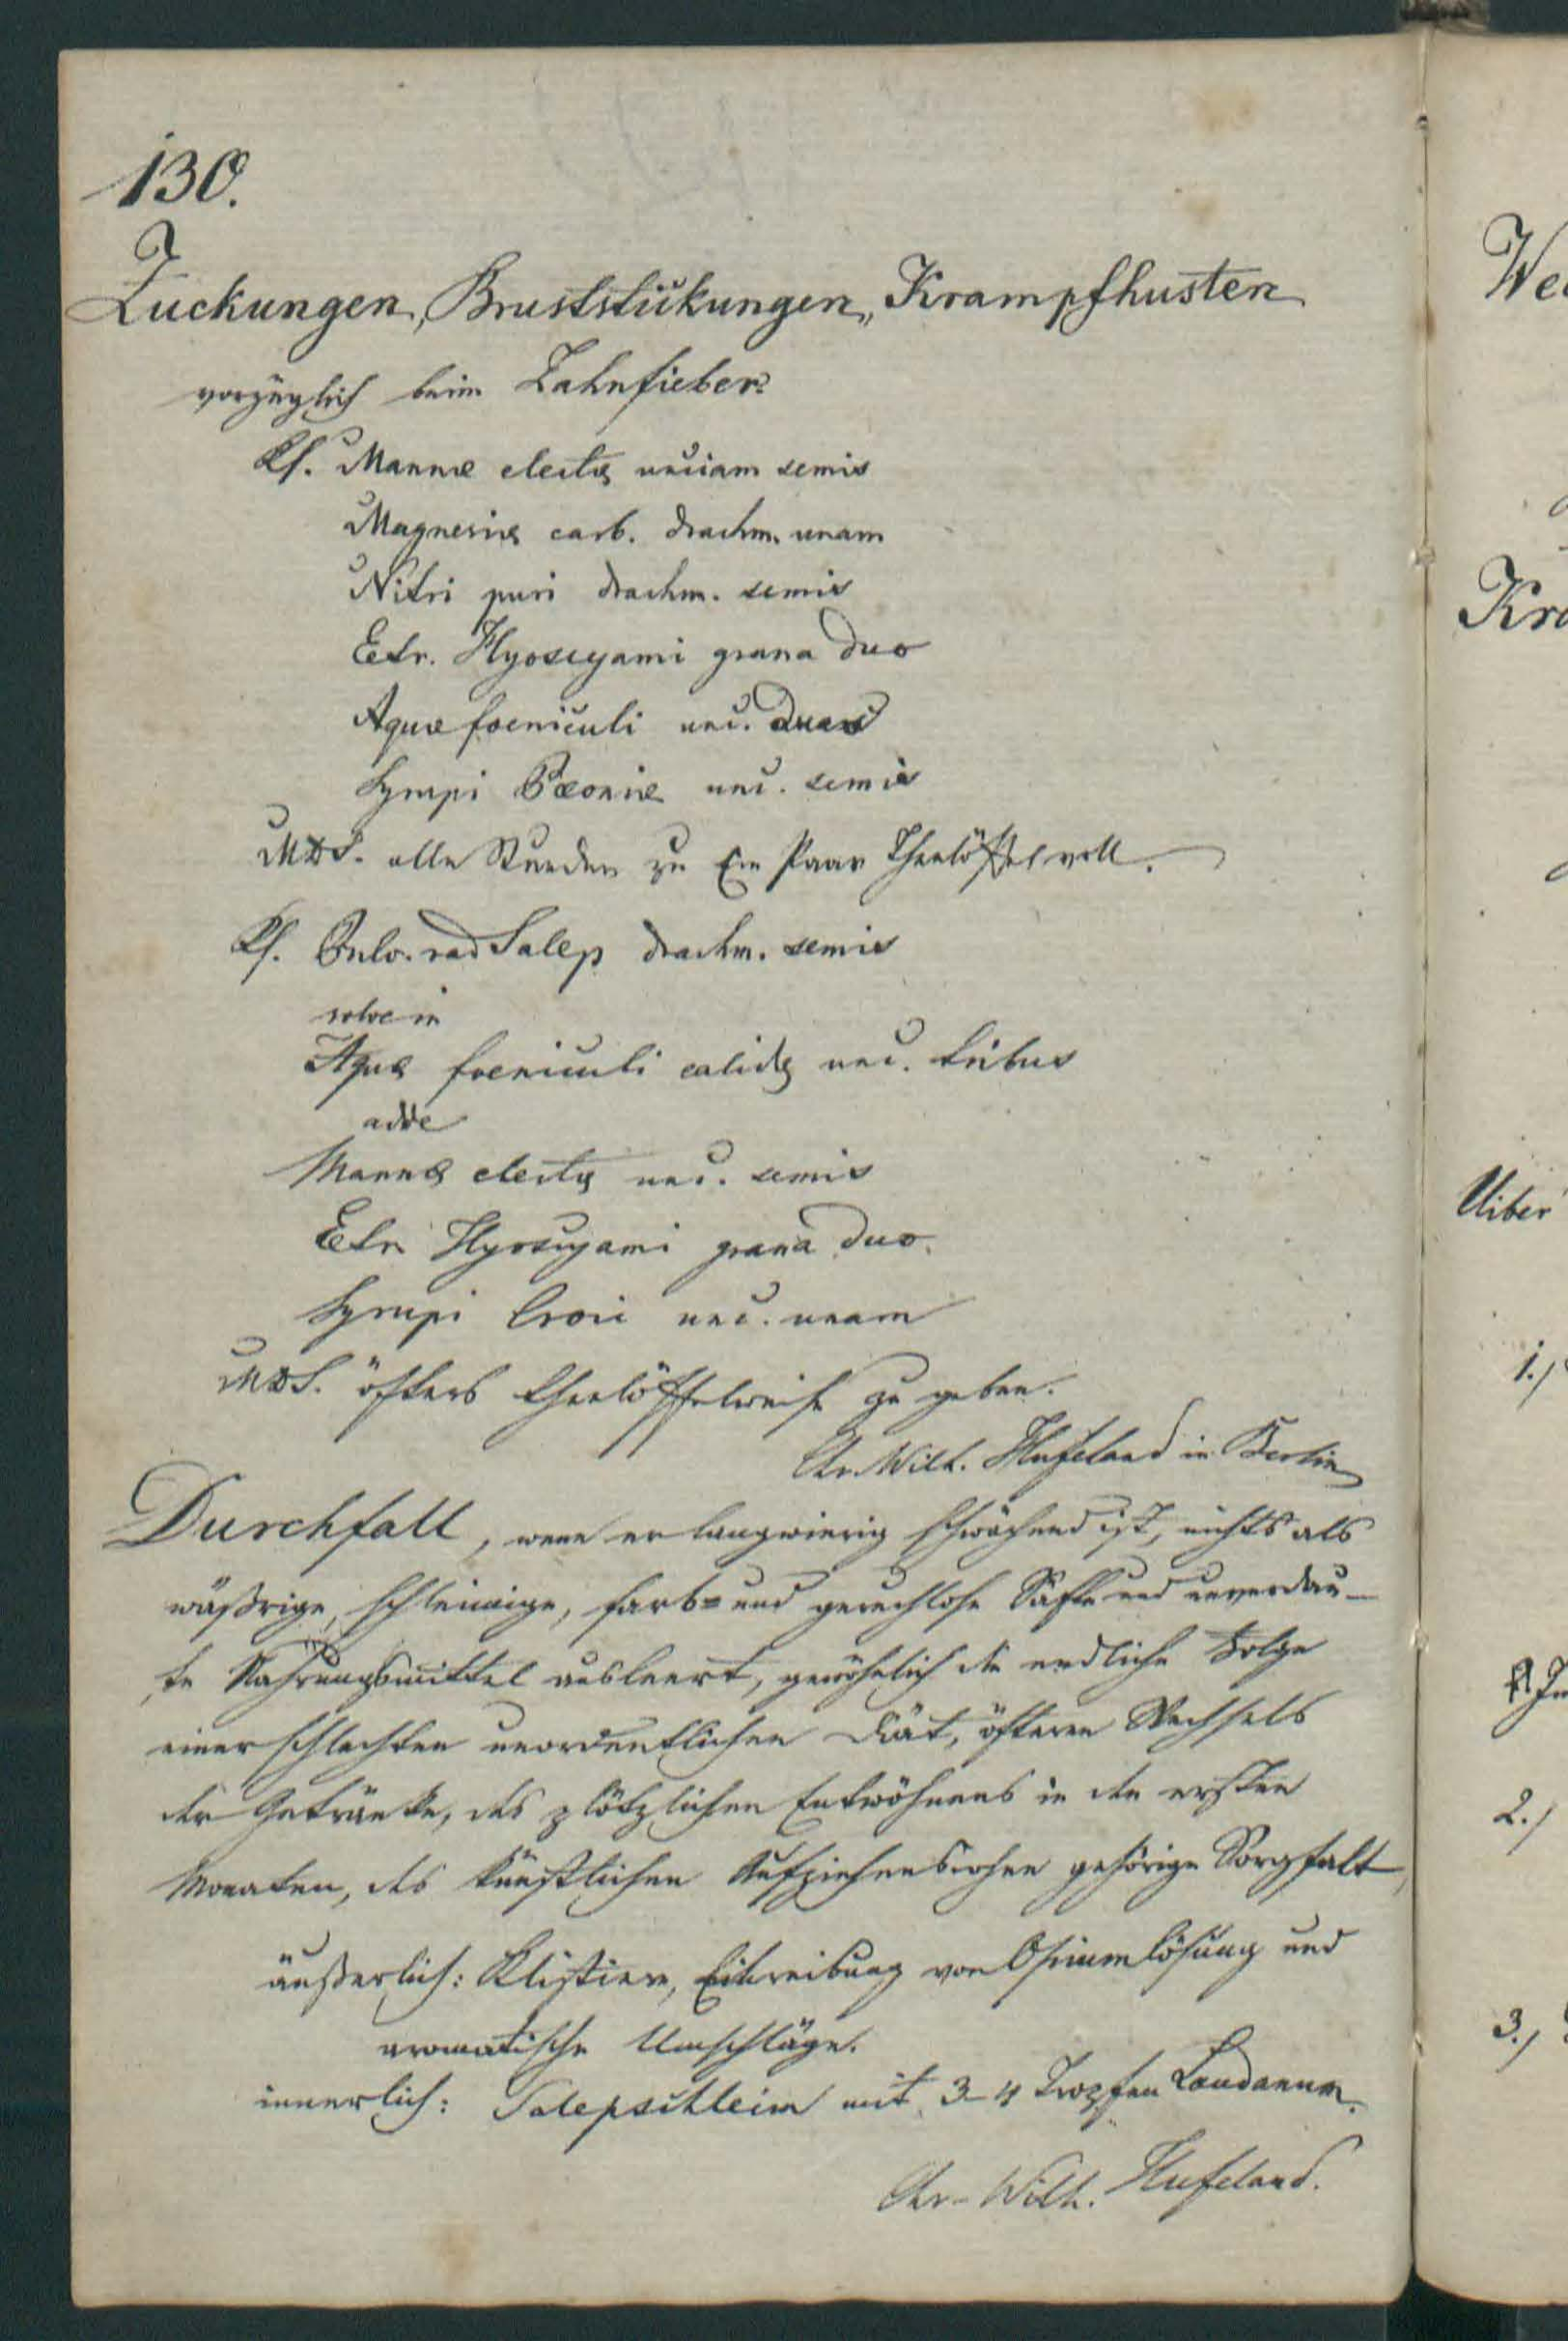 130.
Zuckungen, Bruststickungen, Krampfhusten
vorzüglich beim Zahnfieber.
Rf. Mannæ electæ unciam semis
Magnesiæ carb. drachm. unam
Nitri puri drachm. semis
Extr. Hyoscyami grana duo
Aquæ foeniculi unc. duas
Syrupi Pæoniæ unc. semis
MDS. alle Stunden zu Ein Paar Theelöffel voll.
Rf. Pulv. rad Salep drachm. semis
solve in
Aquæ foeniculi calidæ unc. tribus
adde
Mannæ electæ unc. semis
Extr. Hyoscyami grana duo.
Syrupi Croci unc. unam
MDS. öfters theelöffelweise zu geben.
Chr. Wilh. Hufeland in Berlin
Durchfall, wenn er langwierig schwächend ist, nichts als
wäßrige, schleimige, farb= und geruchlose Säfte und unverdau-
te Nahrungsmittel ausleert, gewöhnlich die endliche Folge
einer schlechten unordentlichen Diät, öfteren Wechsels
der Getränke, des plötzlichen Entwöhnens in den ersten
Monaten, des künstlichen Aufziehens ohne gehörige Sorgfalt,
äußerlich: Klistiere, Einreibung von Opiumlösung und
aromatische Umschläge.
innerlich: Salepschleim mit 3-4 Tropfen Laudanum.
Chr. Wilh. Hufeland.
Kra
Uiber
1.)
2.)
3.)